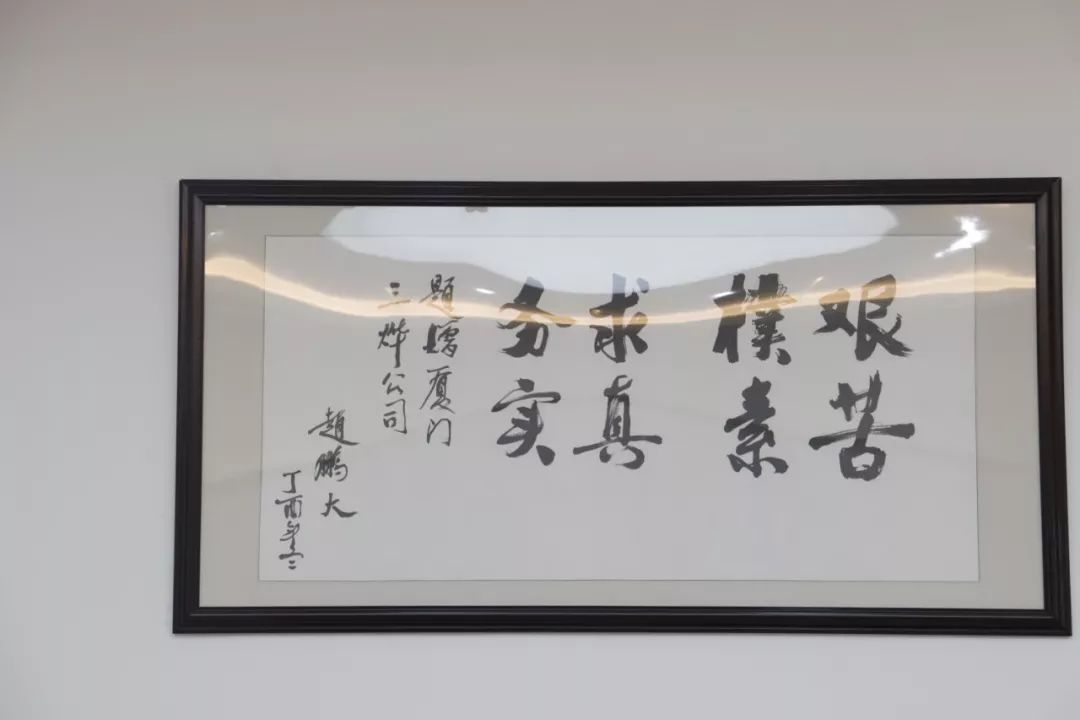 艰苦
樸素
求真
务实
题赠厦门
三烨公司
趙鹏大
丁酉年冬